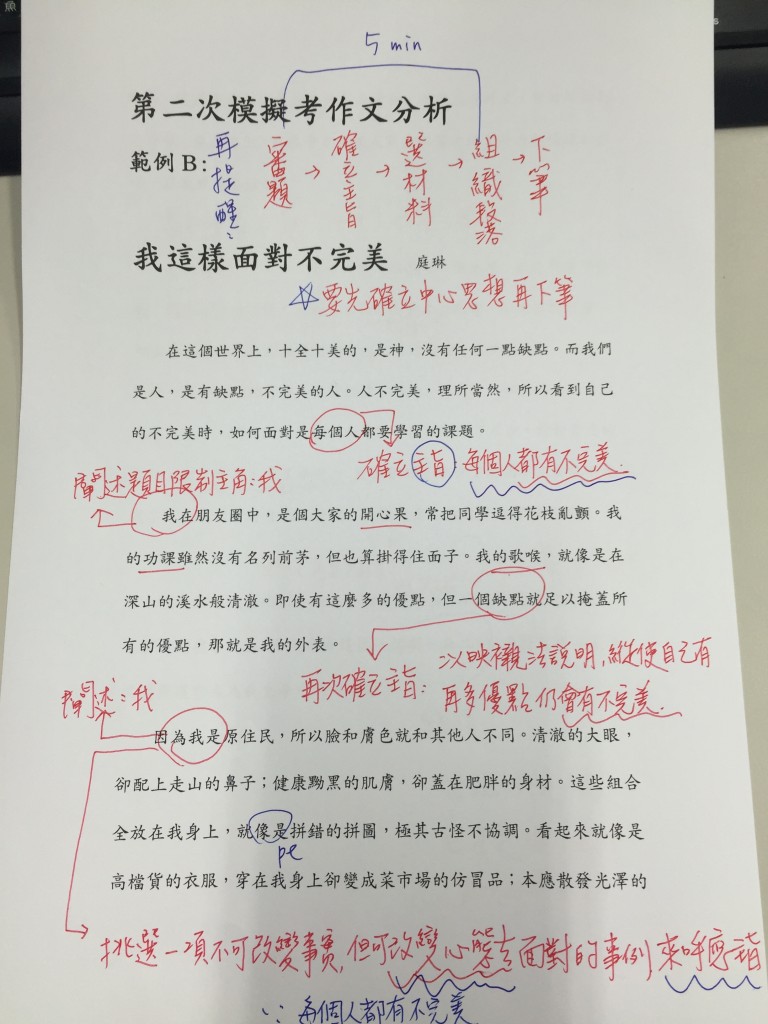 5 min
第二次模擬考作文分析
範例 B：再提醒： 審題→確立主旨→選材料→組織段落→下筆
我這樣面對不完美 庭琳
☆要先確立中心思想再下筆
在這個世界上，十全十美的，是神，沒有任何一點缺點。而我們
是人，是有缺點，不完美的人。人不完美，理所當然，所以看到自己
的不完美時，如何面對是每個人都要學習的課題。
確立主旨：每個人都有不完美.
闡述題目限制主角：我
我在朋友圈中，是個大家的開心果，常把同學逗得花枝亂顫。我
的功課雖然沒有名列前茅，但也算掛得住面子。我的歌喉，就像是在
深山的溪水般清澈。即使有這麼多的優點，但一個缺點就足以掩蓋所
有的優點，那就是我的外表。
再次確立主旨：以映襯法說明，縱使自己有
再多優點仍會有不完美.
闡述：我
因為我是原住民，所以臉和膚色就和其他人不同。清澈的大眼，
卻配上走山的鼻子；健康黝黑的肌膚，卻蓋在肥胖的身材。這些組合
全放在我身上，就像是拼錯的拼圖，極其古怪不協調。看起來就像是
pe
高檔貨的衣服，穿在我身上卻變成菜市場的仿冒品；本應散發光澤的
挑選一項不可改變事實，但可改變心態去面對的事例，來呼應主旨
∵每個人都有不完美